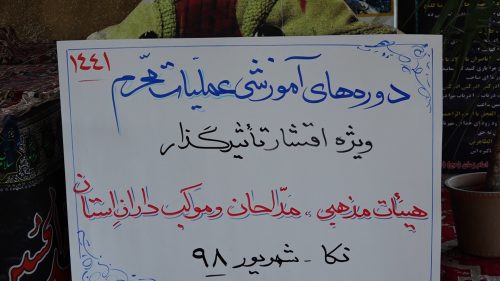 ۱۴۴۱
دوره‌های آموزشی عملیات محرم
ویژه اقتشار تأثیرگذار
هیئات مذهبی، مداحان و موکب داران استان
نکا - شهریور ۹۸